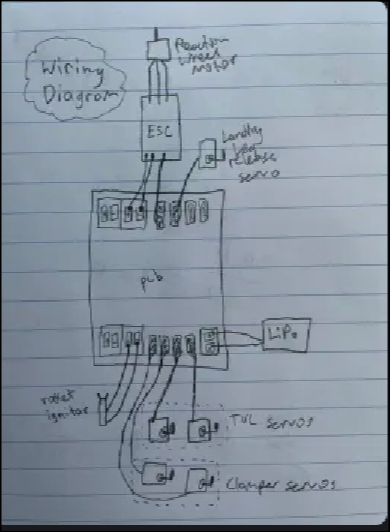 Wiring
Diagram
Reaction
wheel
motor
ESC
Landing
leg
release
servo
pcb
LiPo
rocket
ignitor
TVC servos
Clamper servos